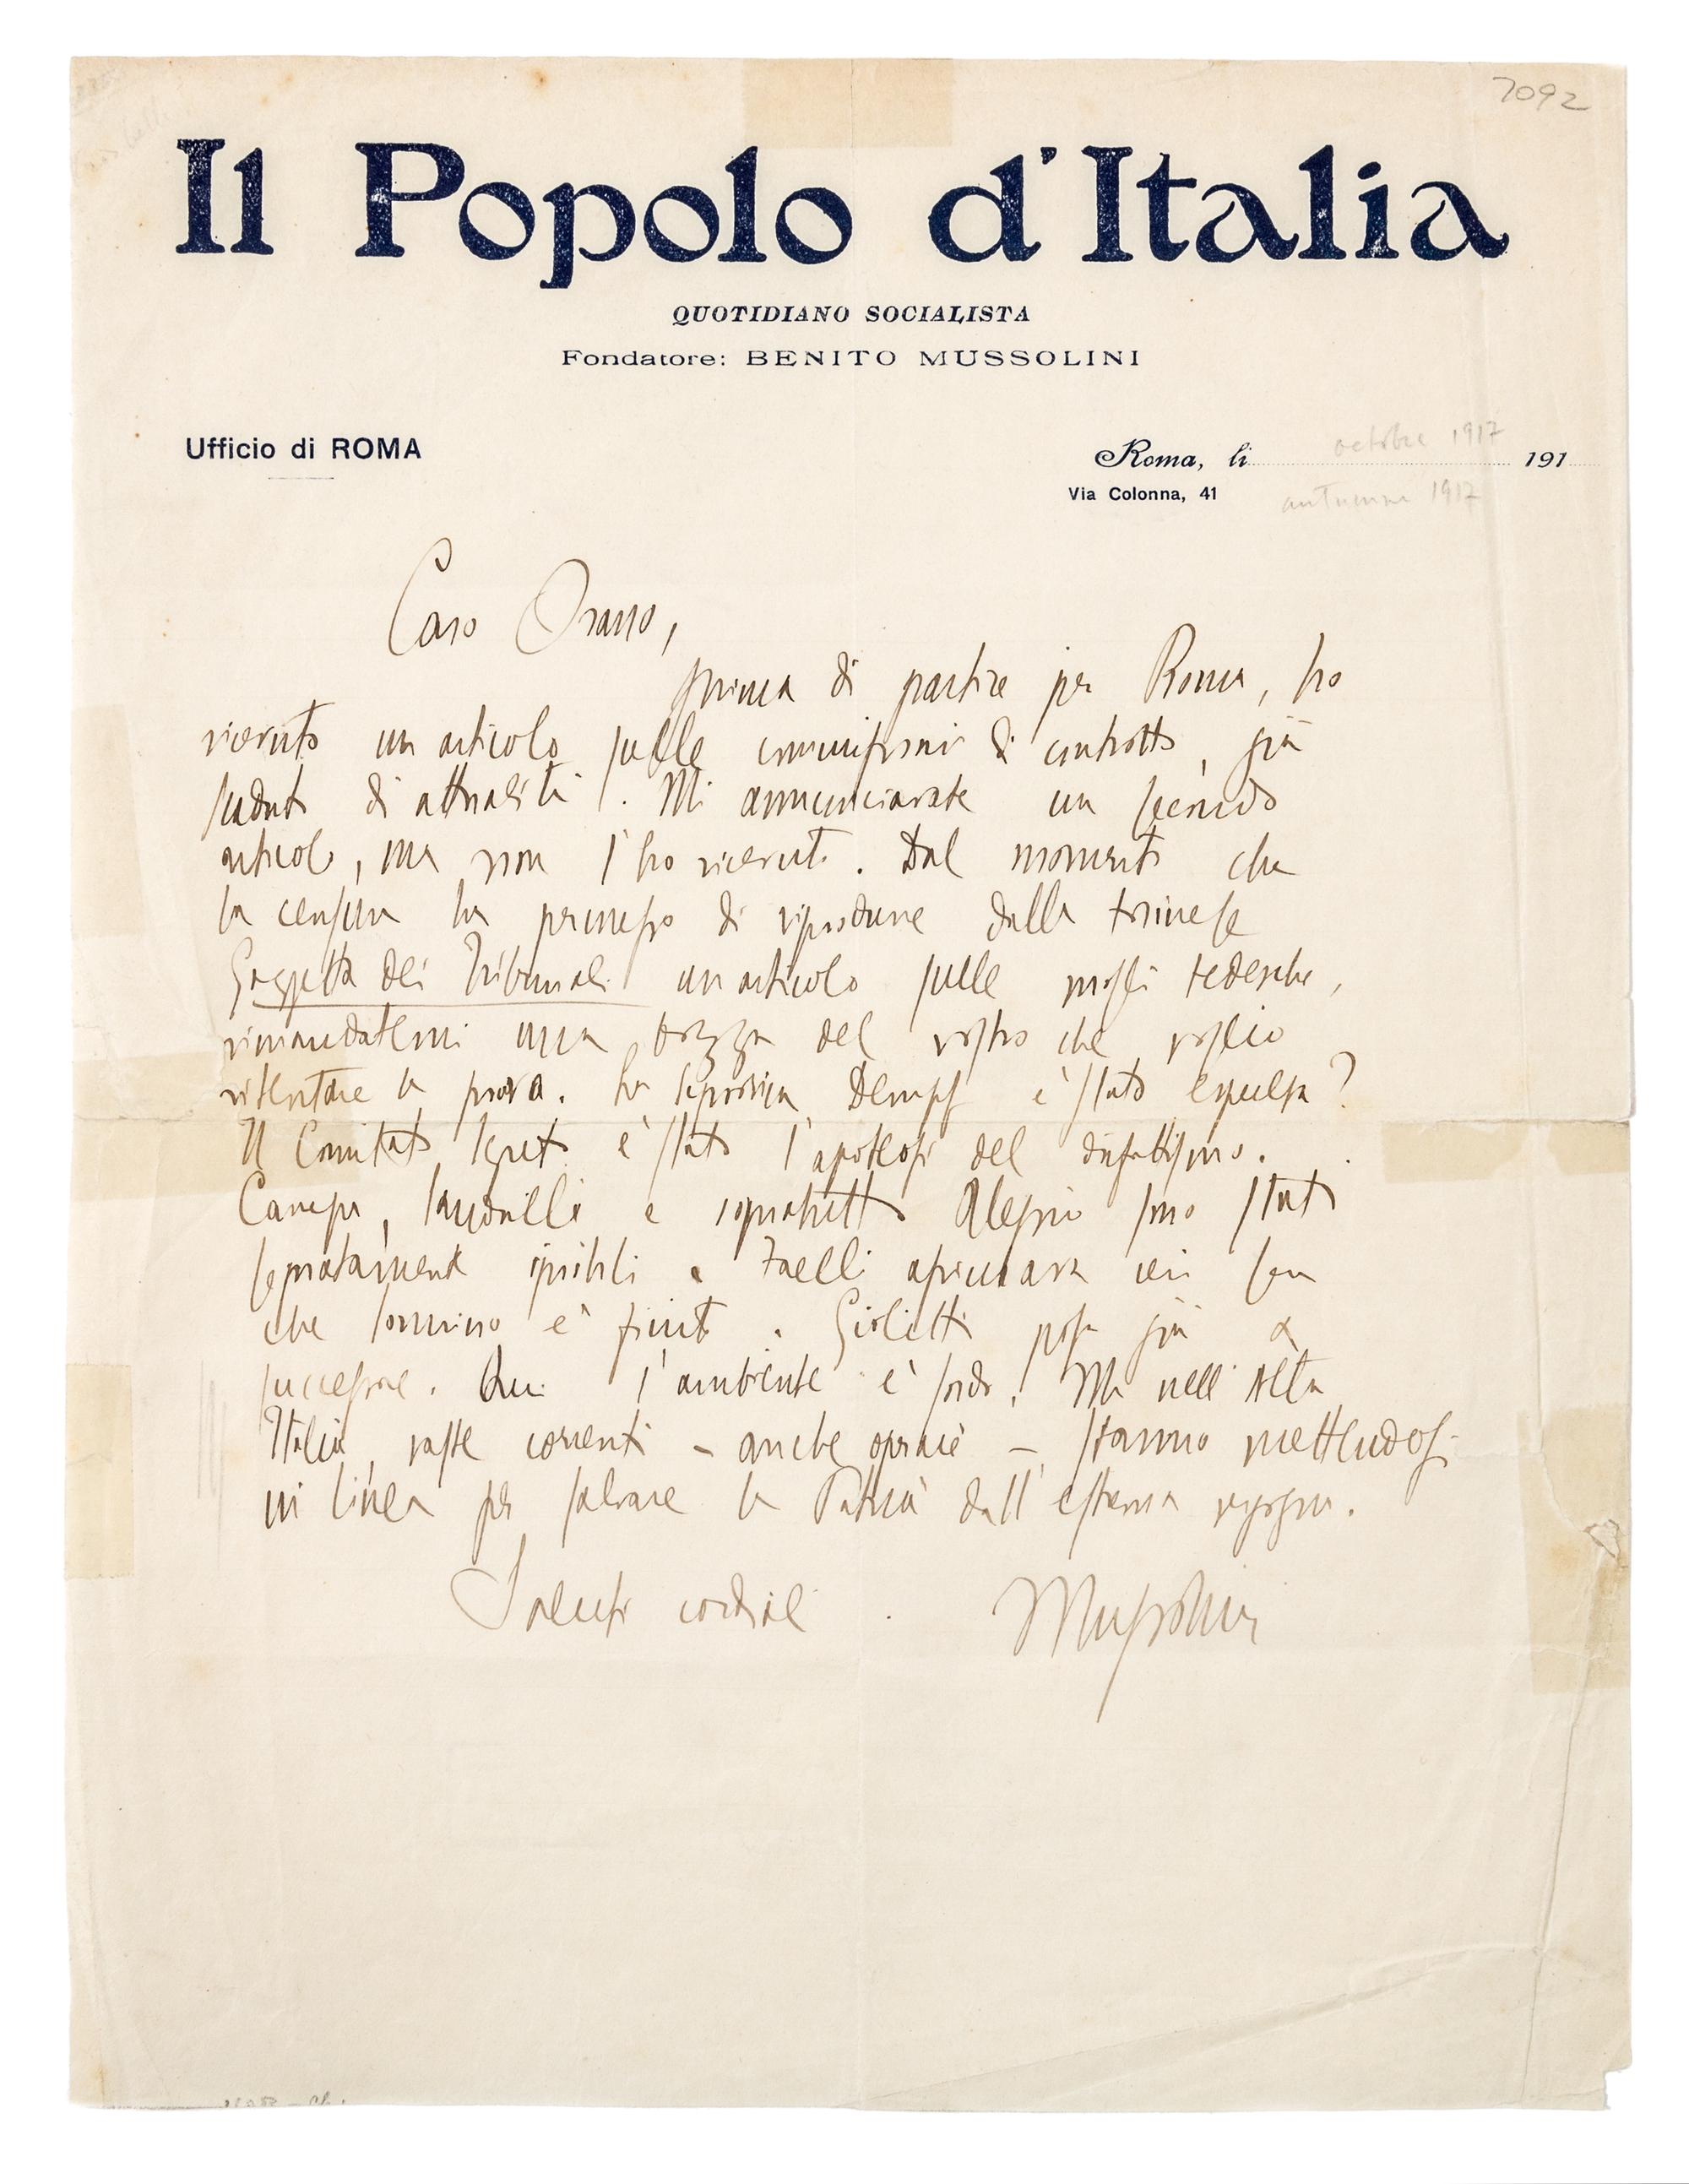 7092
Il Popolo d'Italia
QUOTIDIANO SOCIALISTA
Fondatore: BENITO MUSSOLINI
Ufficio di ROMA
octobre 1917
Roma, li 191
Via Colonna, 41
automne 1917
Caro Orano,
prima di partire per Roma, ho
ricevuto un articolo sulle commissioni di controllo, già
scaduto di attualità. Mi annunciavate un secondo
articolo, ma non l'ho ricevuto. Dal momento che
la censura ha permesso di riprodurre dalla torinese
Gazzetta dei Tribunali un articolo sulle mogli tedesche,
rimandatemi una bozza del vostro che voglio
ritentare la prova. La signorina è stata espulsa?
Il Comitato Segreto è stato l'apoteosi del disfattismo.
Canepa, e soprattutto Alessio sono stati
ignobili. affermava ieri sera
che Sonnino è finito. Giolitti posa già a
successore. Qui l'ambiente è sordo. Ma nell'Alta
Italia, vaste correnti - anche operaie - stanno mettendosi
in linea per salvare la Patria dall'estrema vergogna.
Saluti cordiali. Mussolini